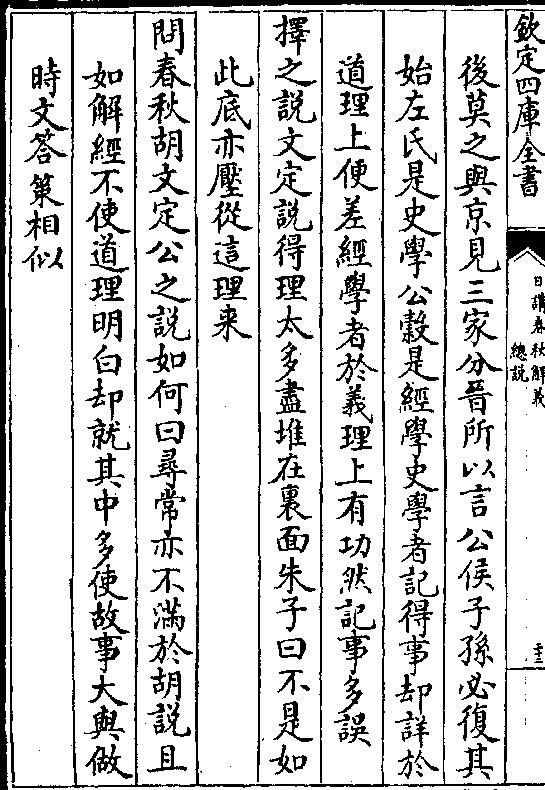 欽定四庫全書
日講春秋解義
總說
三十三
後莫之與京見三家分晉所以言公侯子孫必復其
始左氏是史學公穀是經學史學者記得事却詳於
道理上便差經學者於義理上有功然記事多誤
擇之說文定說得理太多盡堆在裏面朱子曰不是如
此底亦壓從這理来
問春秋胡文定公之說如何曰尋常亦不滿於胡說且
如解經不使道理明白却就其中多使故事大與做
時文答策相似